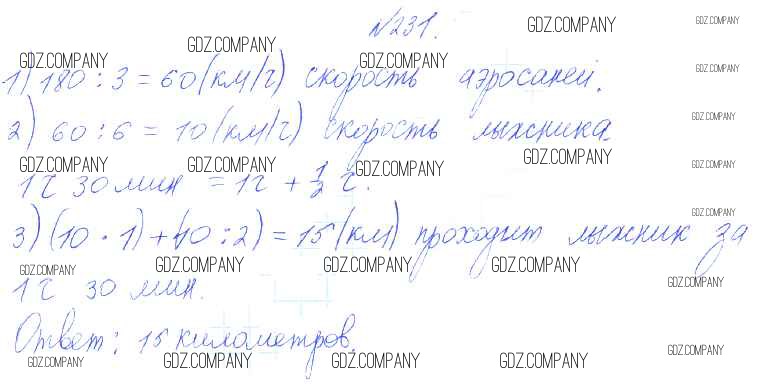 №231.
1) 180 : 3 = 60 (км/ч) скорость аэросаней.
2) 60 : 6 = 10 (км/ч) скорость лыжника
1 ч 30 мин = 1 ч + 1/2 ч.
3) (10 · 1) + (10 : 2) = 15 (км) проходит лыжник за
1 ч 30 мин.
Ответ: 15 километров.
GDZ.COMPANY GDZ.COMPANY
GDZ.COMPANY
GDZ.COMPANY GDZ.COMPANY GDZ.COMPANY
GDZ.COMPANY
GDZ.COMPANY GDZ.COMPANY GDZ.COMPANY GDZ.COMPANY GDZ.COMPANY
GDZ.COMPANY
GDZ.COMPANY GDZ.COMPANY GDZ.COMPANY GDZ.COMPANY
GDZ.COMPANY
GDZ.COMPANY GDZ.COMPANY GDZ.COMPANY GDZ.COMPANY GDZ.COMPANY